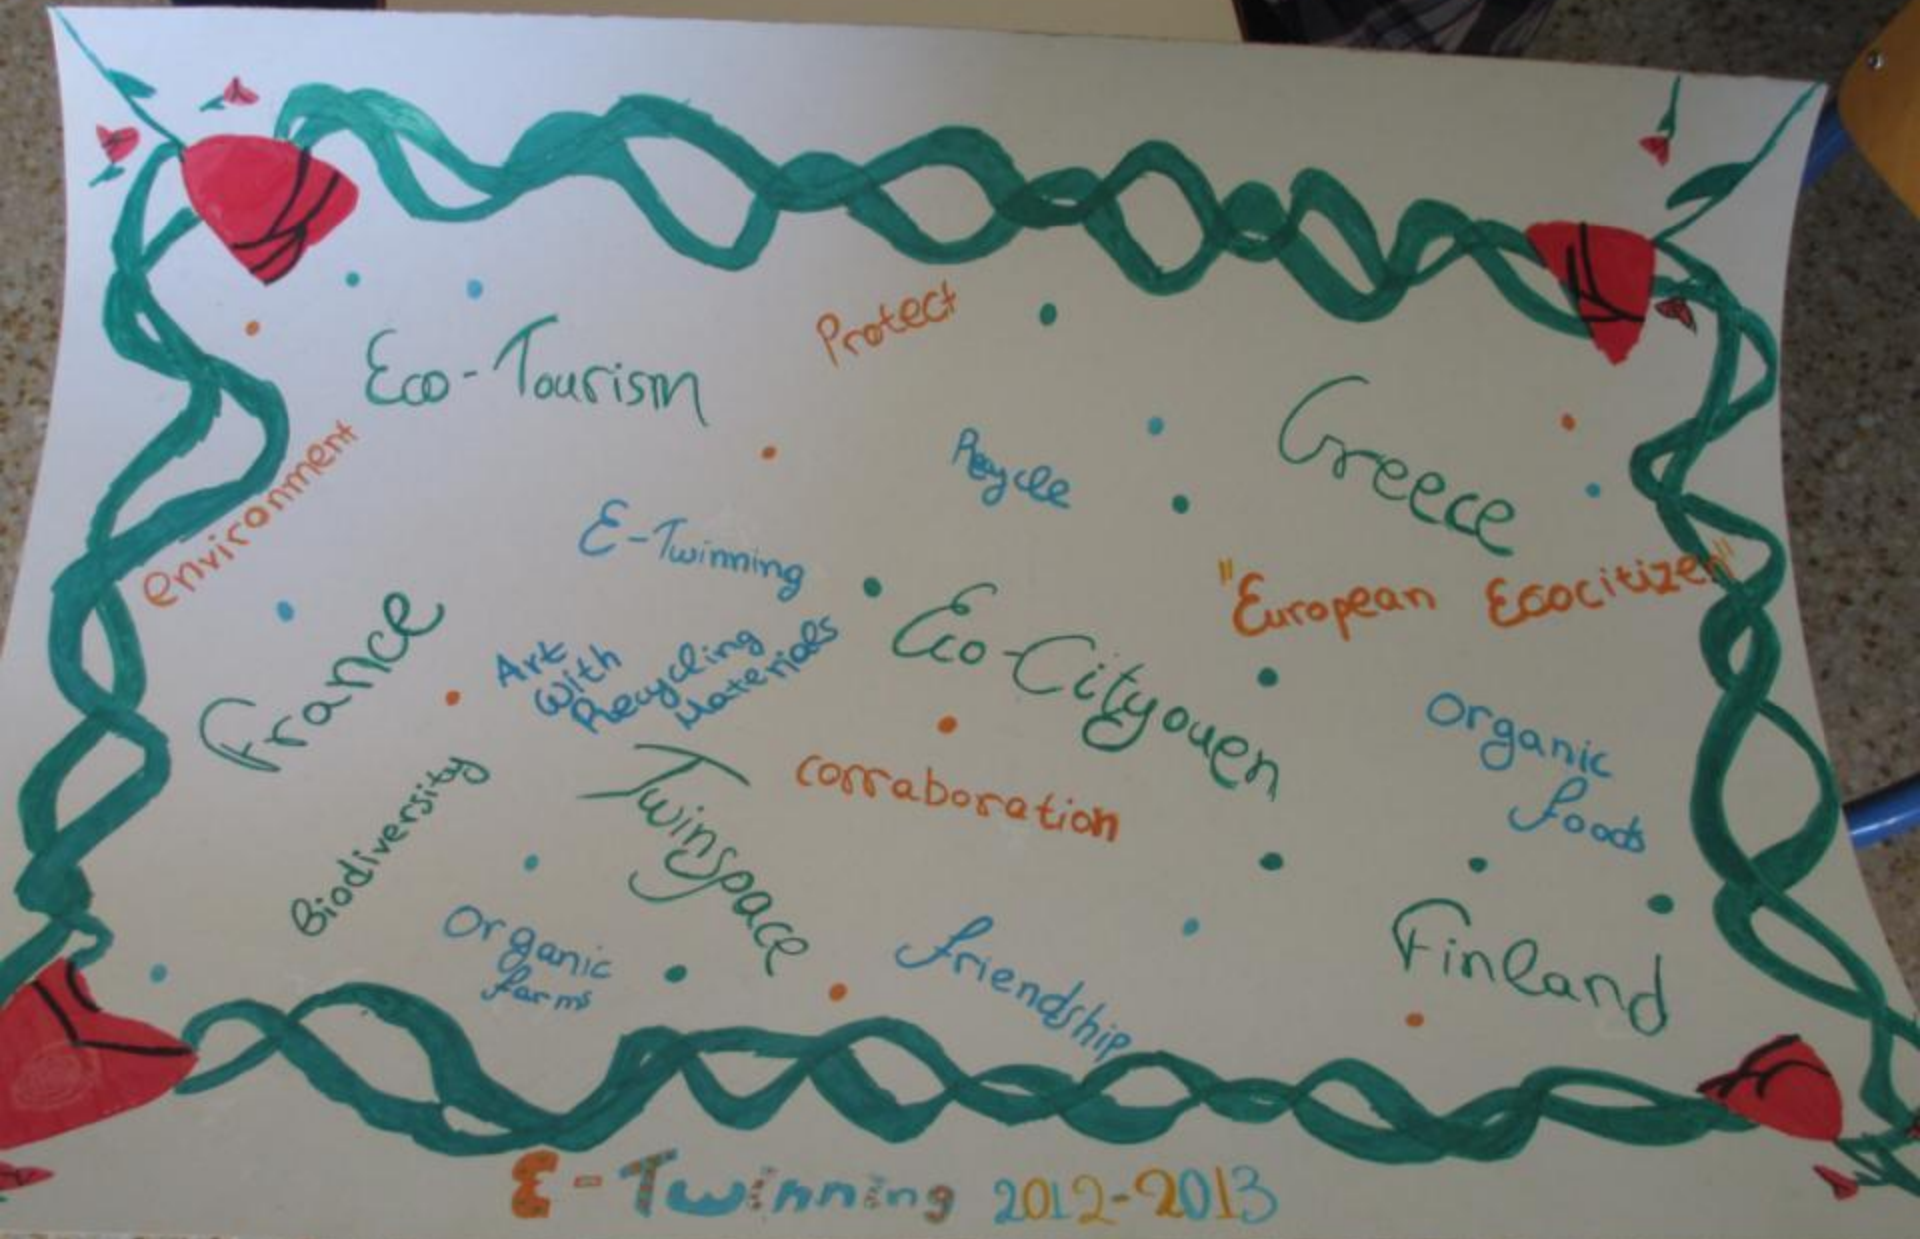 Protect
Eco-Tourism
Greece
Recycle
environment
E-Twinning
"European Ecocitizen"
France
Art
With
Recycling
Materials
Eco-Cityouen
Organic
foods
Biodiversity
Twinspace
corraboration
Organic
farms
friendship
Finland
E-Twinning 2012-2013